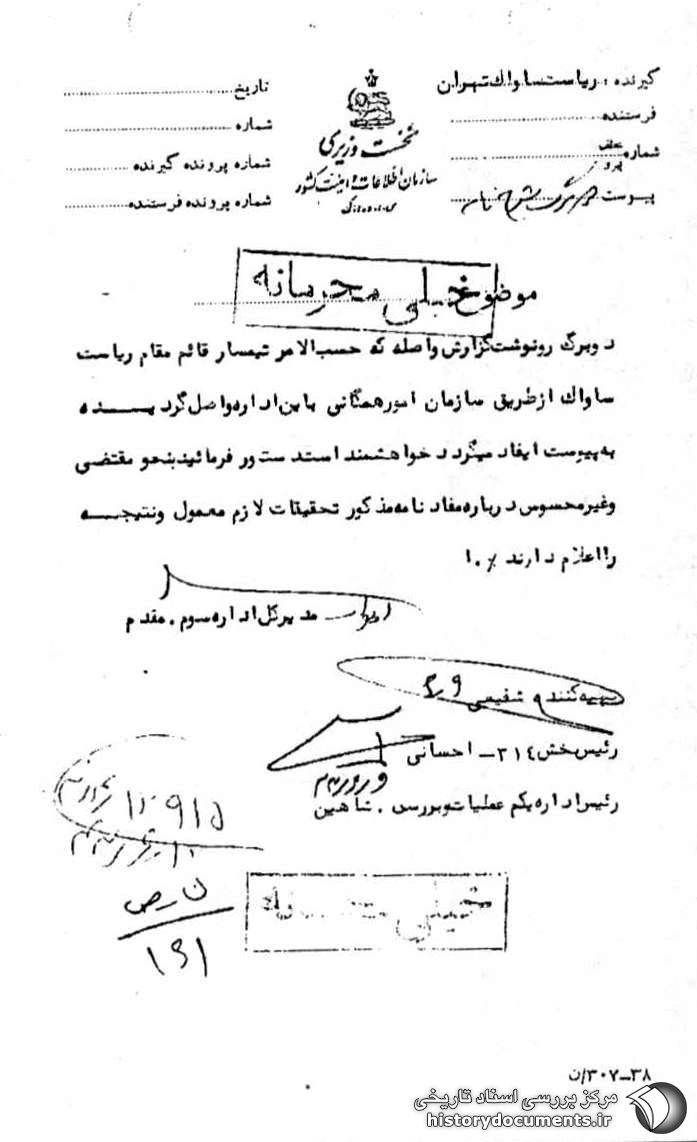 گیرنده: ریاست ساواک تهران
فرستنده
شماره
پیوست
نخست وزیری
سازمان اطلاعات و امنیت کشور
س.ا.و.ا.ک
تاریخ
شماره
شماره پرونده گیرنده
شماره پرونده فرستنده
موضوع
خیلی محرمانه
دوبرگ رونوشت گزارش واصله که حسب الامر تیمسار قائم مقام ریاست
ساواک ازطریق سازمان امور همگانی باین اداره واصل گردیـــده
به پیوست ایفاد میگردد خواهشمند است دستور فرمائید بنحو مقتضی
وغیرمحسوس درباره مفاد نامه مذکور تحقیقات لازم معمول ونتیجــه
را اعلام دارند ٪ .ا
مدیرکل اداره سوم . مقدم
تهیه کننده شفیعی
رئیس بخش ۳۱۴ـ احسانی
رئیس اداره یکم عملیات و بررسی . شاهین
خیلی محرمانه
۱۳۹۱۵
۱۶۱
۳۸ــ۳۰۷/ن
مرکز بررسی اسناد تاریخی
historydocuments.ir